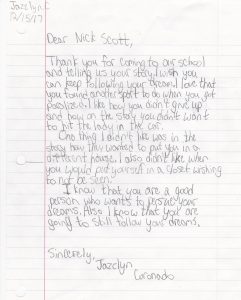 Jazclyn
12/15/17
Dear Nick Scott,
Thank you for coming to our school
and telling us your story I wish you
can keep following your dream. I love that
you found another sport to do when you got
paralized. I like how you didn't give up
and how on the story you didn't want
to hit the lady in the car.
One thing I didn't like was in the
story how they wanted to put you in a
different house. I also didn't like when
you would put yourself in a closet wishing
to not be seen.
I know that you are a good
person who wants to persue your
dreams. Also I know that you are
going to still follow your dreams.
Sincerely,
Jazclyn
Coronado